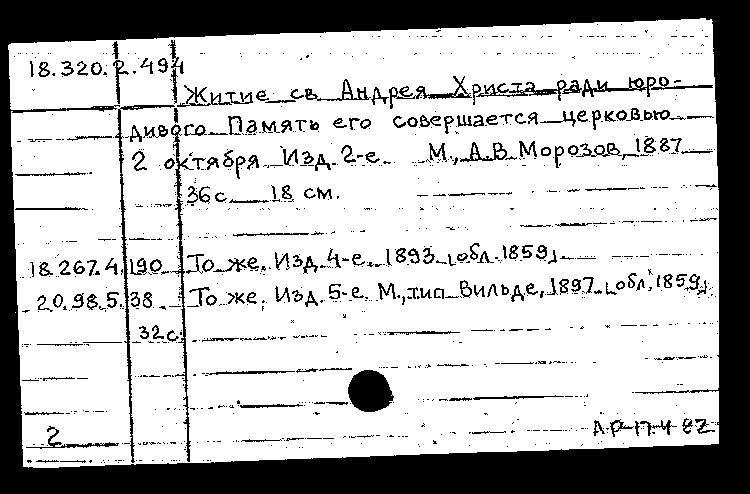 18.320.2.494
Житие св. Андрея Христа ради юро-
дивого. Память его совершается церковью
2 октября. Изд. 2-е. М., А.В. Морозов, 1887
36с. 18 см.
18.267.4.190 То же. Изд. 4-е. 1893 [обл. 1859]
20.98.5.38 То же. Изд. 5-е. М., тип. Вильде, 1897. [обл. 1859]
32с.
2 АР-П-4-82